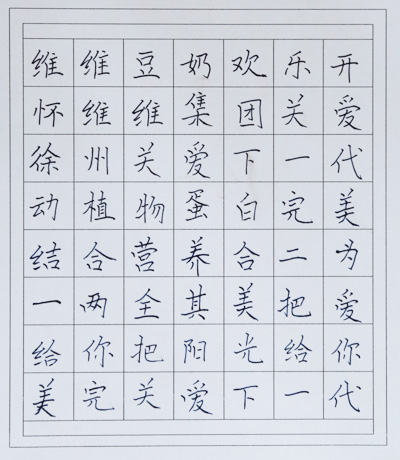 维维豆奶欢乐开
怀维维集团关爱
徐州关爱下一代
动植物蛋白完美
结合营养合二为
一两全其美把爱
给你把阳光给你
美完关爱下一代